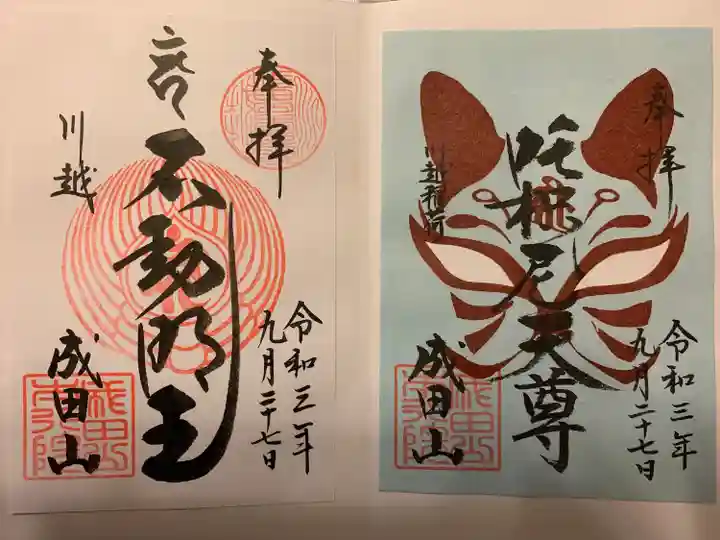 奉拝
不動明王
川越
令和三年
九月二十七日
成田山
奉拝
吒枳尼天尊
川越稲荷
令和三年
九月二十七日
成田山